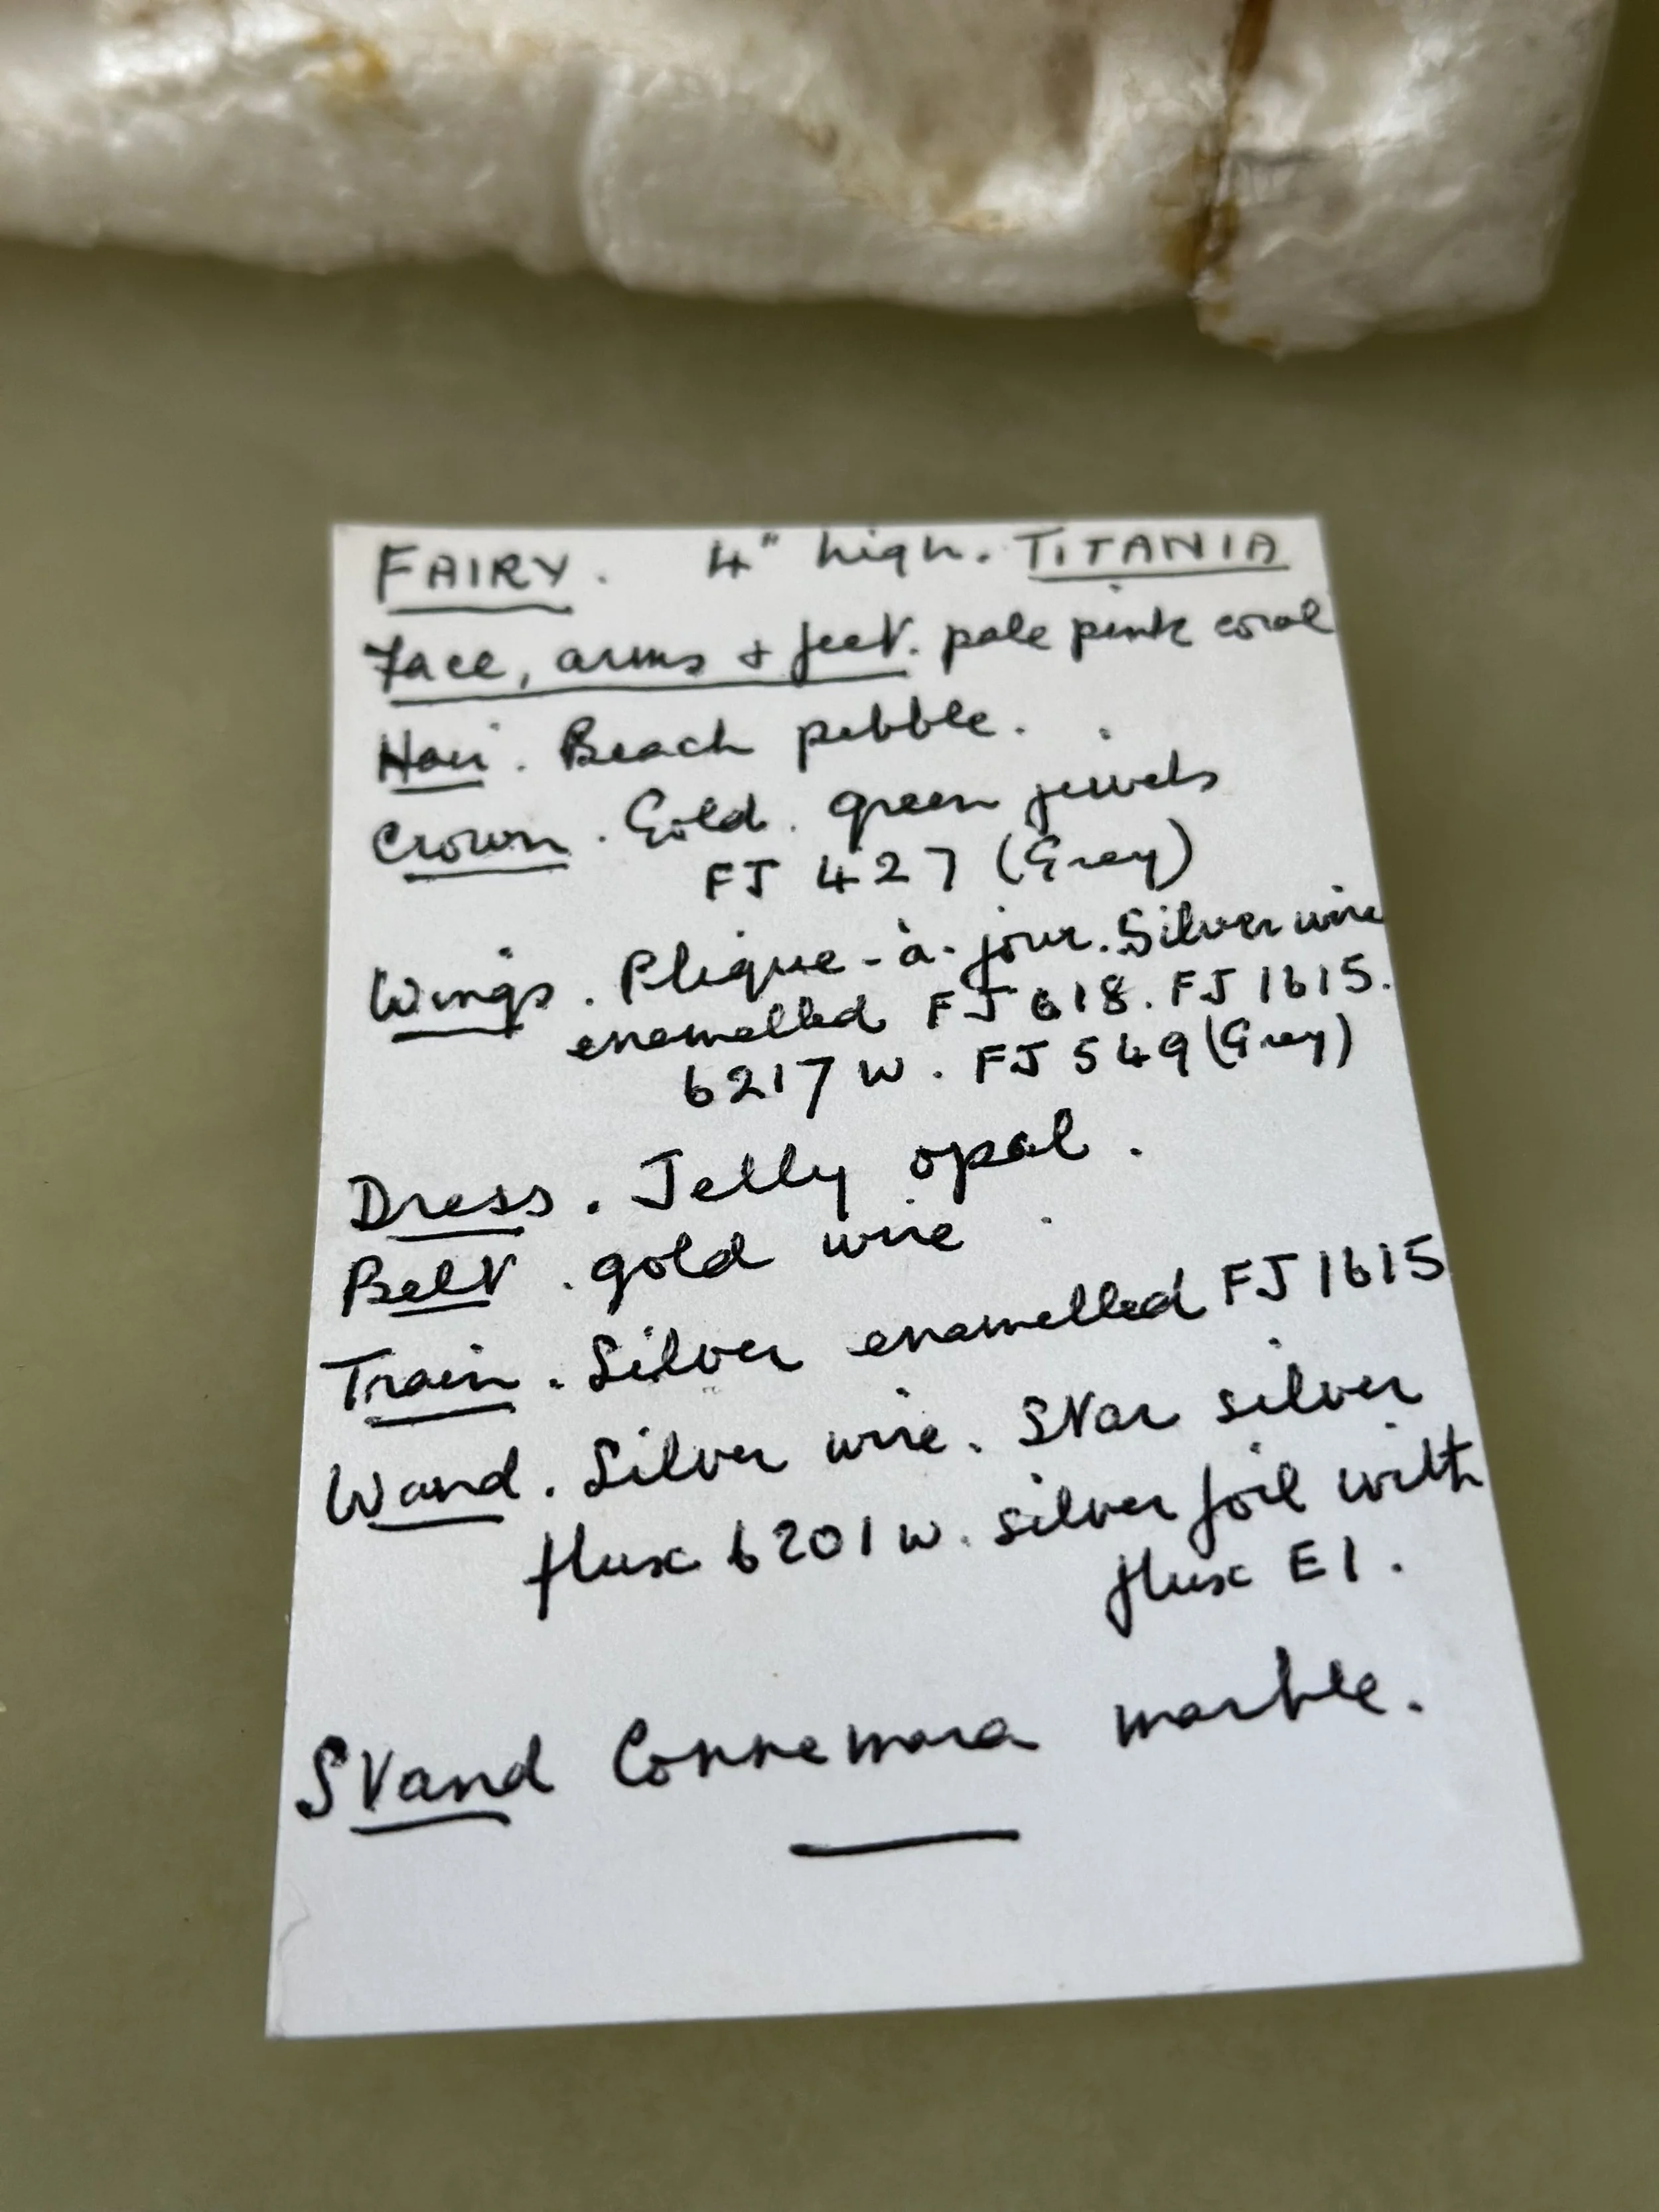 FAIRY. 4" high. TITANIA
Face, arms + feet. pale pink coral
Hair. Beach pebble.
Crown. Gold. green jewels
FJ 427 (Gray)
Wings. Plique-à-jour. Silver wire
enamelled FJ 618. FJ 1615.
6217 W. FJ 549 (Gray)
Dress. Jelly opal.
Belt. gold wire
Train. Silver enamelled FJ 1615
Wand. Silver wire. Star silver
flux 6201 W. silver foil with
flux E1.
Stand Connemara marble.